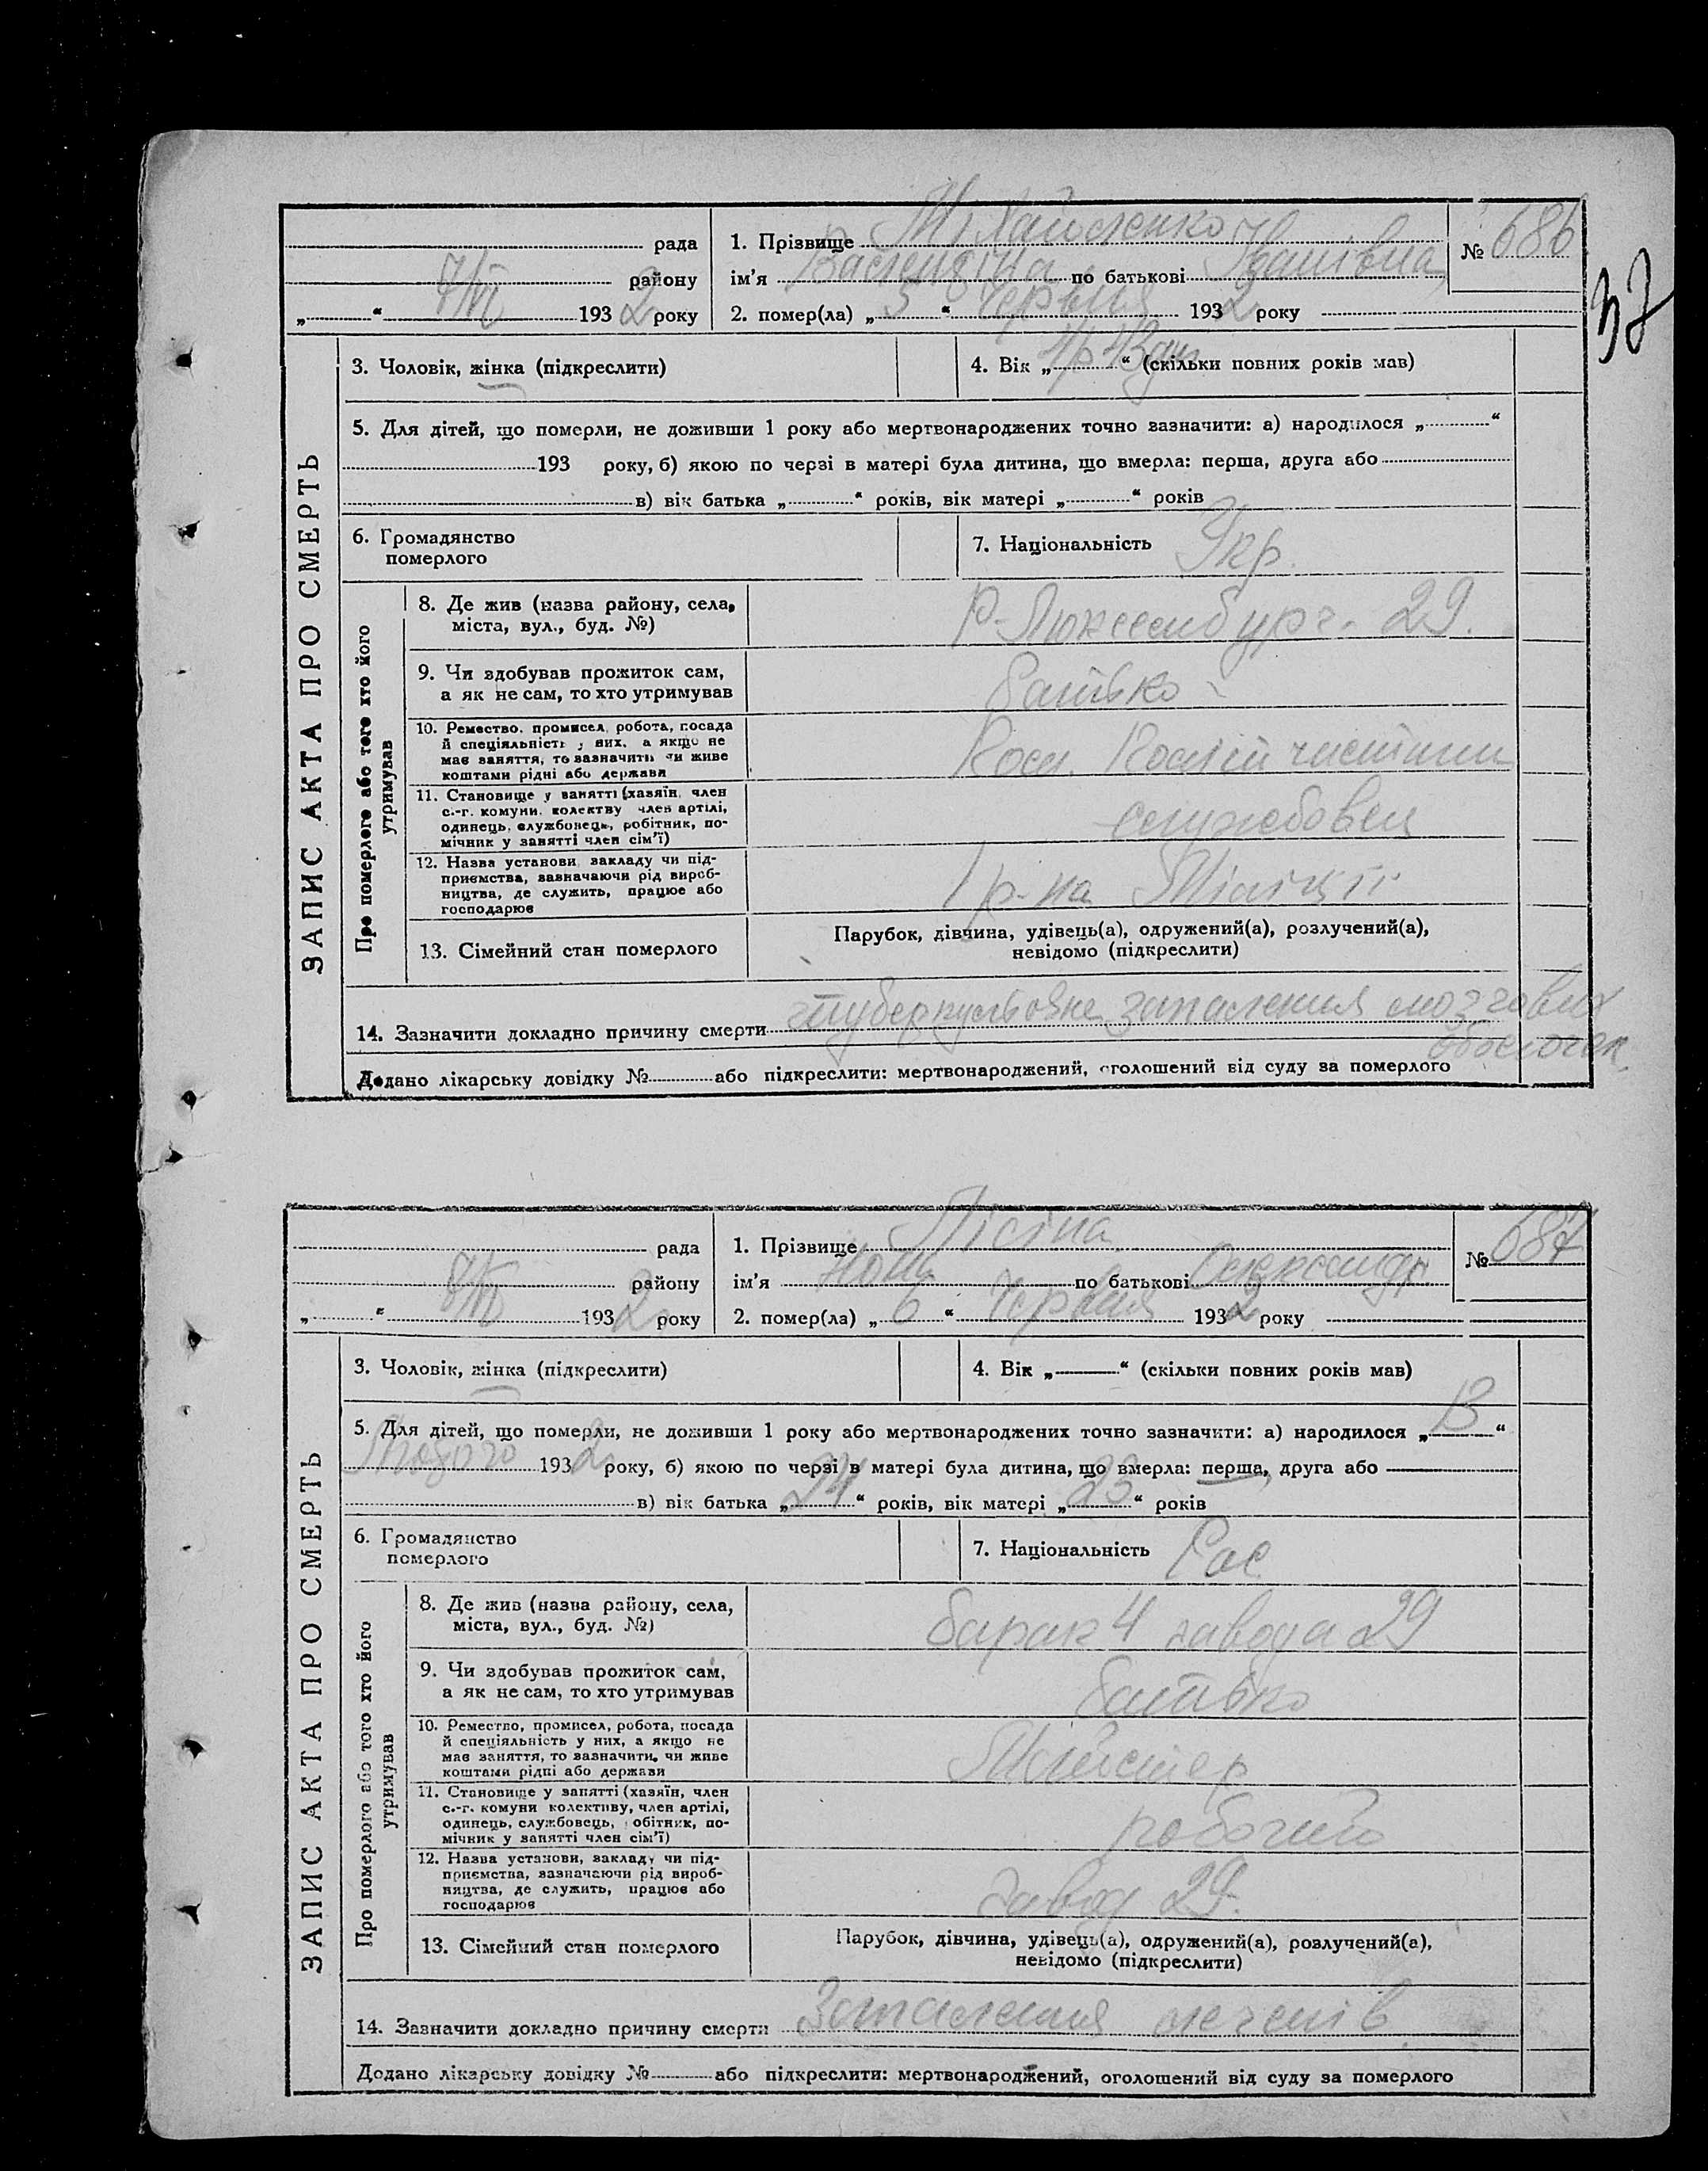 37
рада
районУ
7/VI
„ “ 1932 року
1. Прізвище Михайленко
ім’я Валентіна по батькові Іванівна
2. помер(ла) „ 5 “ Червня 1932 року
№ 686
ЗАПИС АКТА ПРО СМЕРТЬ
3. Чоловік, жінка (підкреслити)
4. Вік „ “ (скільки повних років мав)
5. Для дітей, що померли, не доживши 1 року або мертвонароджених точно зазначити: а) народилося „ “
193 року, б) якою по черзі в матері була дитина, що вмерла: перша, друга або
в) вік батька „ “ років, вік матері „ “ років
6. Громадянство
померлого
7. Національність Укр.
Про померлого або того хто його
утримував
8. Де жив (назва району, села,
міста, вул., буд. №)
Р-Люксембург. 29.
9. Чи здобував прожиток сам,
а як не сам, то хто утримував
батько
10. Ремество, промисел, робота, посада
й спеціяльність у них, а якщо не
має заняття, то зазначити чи живе
коштами рідні або держави
частини
11. Становище у занятті (хазяїн, член
с.-г. комуни, колектву член артілі,
одинець, службовець, робітник, по-
мічник у занятті член сім’ї)
службовец
12. Назва установи, закладу чи під-
приємства, зазначаючи рід вироб-
ництва, де служить, працює або
господарює
1 р-на Міліції
13. Сімейний стан померлого
Парубок, дівчина, удівець(а), одружений(а), розлучений(а),
невідомо (підкреслити)
14. Зазначити докладно причину смерти туберкульозне запалення мозгових
оболочек
Додано лікарську довідку № або підкреслити: мертвонароджений, оголошений від суду за померлого
рада
району
7/VI
„ “ 1932 року
1. Прізвище Лісіна
ім’я по батькові Олександр
2. помер(ла) „ 6 “ Червня 1932 року
№ 687
ЗАПИС АКТА ПРО СМЕРТЬ
3. Чоловік, жінка (підкреслити)
4. Вік „ “ (скільки повних років мав)
5. Для дітей, що померли, не доживши 1 року або мертвонароджених точно зазначити: а) народилося „ 13 “
Лютого 1932 року, б) якою по черзі в матері була дитина, що вмерла: перша, друга або
в) вік батька „ 24 “ років, вік матері „ 23 “ років
6. Громадянство
померлого
7. Національність Рос
Про померлого або того хто його
утримував
8. Де жив (назва району, села,
міста, вул., буд. №)
барак 4 завода 29
9. Чи здобував прожиток сам,
а як не сам, то хто утримував
батько
10. Ремество, промисел, робота, посада
й спеціяльність у них, а якщо не
має заняття, то зазначити, чи живе
коштами рідні або держави
Мійстер
11. Становище у занятті (хазяїн, член
с.-г. комуни колективу, член артілі,
одинець, службовець, робітник, по-
мічник у занятті член сім’ї)
робочий
12. Назва установи, закладу чи під-
приємства, зазначаючи рід вироб-
ництва, де служить, працює або
господарює
завод 29.
13. Сімейний стан померлого
Парубок, дівчина, удівець(а), одружений(а), розлучений(а),
невідомо (підкреслити)
14. Зазначити докладно причину смерти Запалення легенів
Додано лікарську довідку № або підкреслити: мертвонароджений, оголошений від суду за померлого